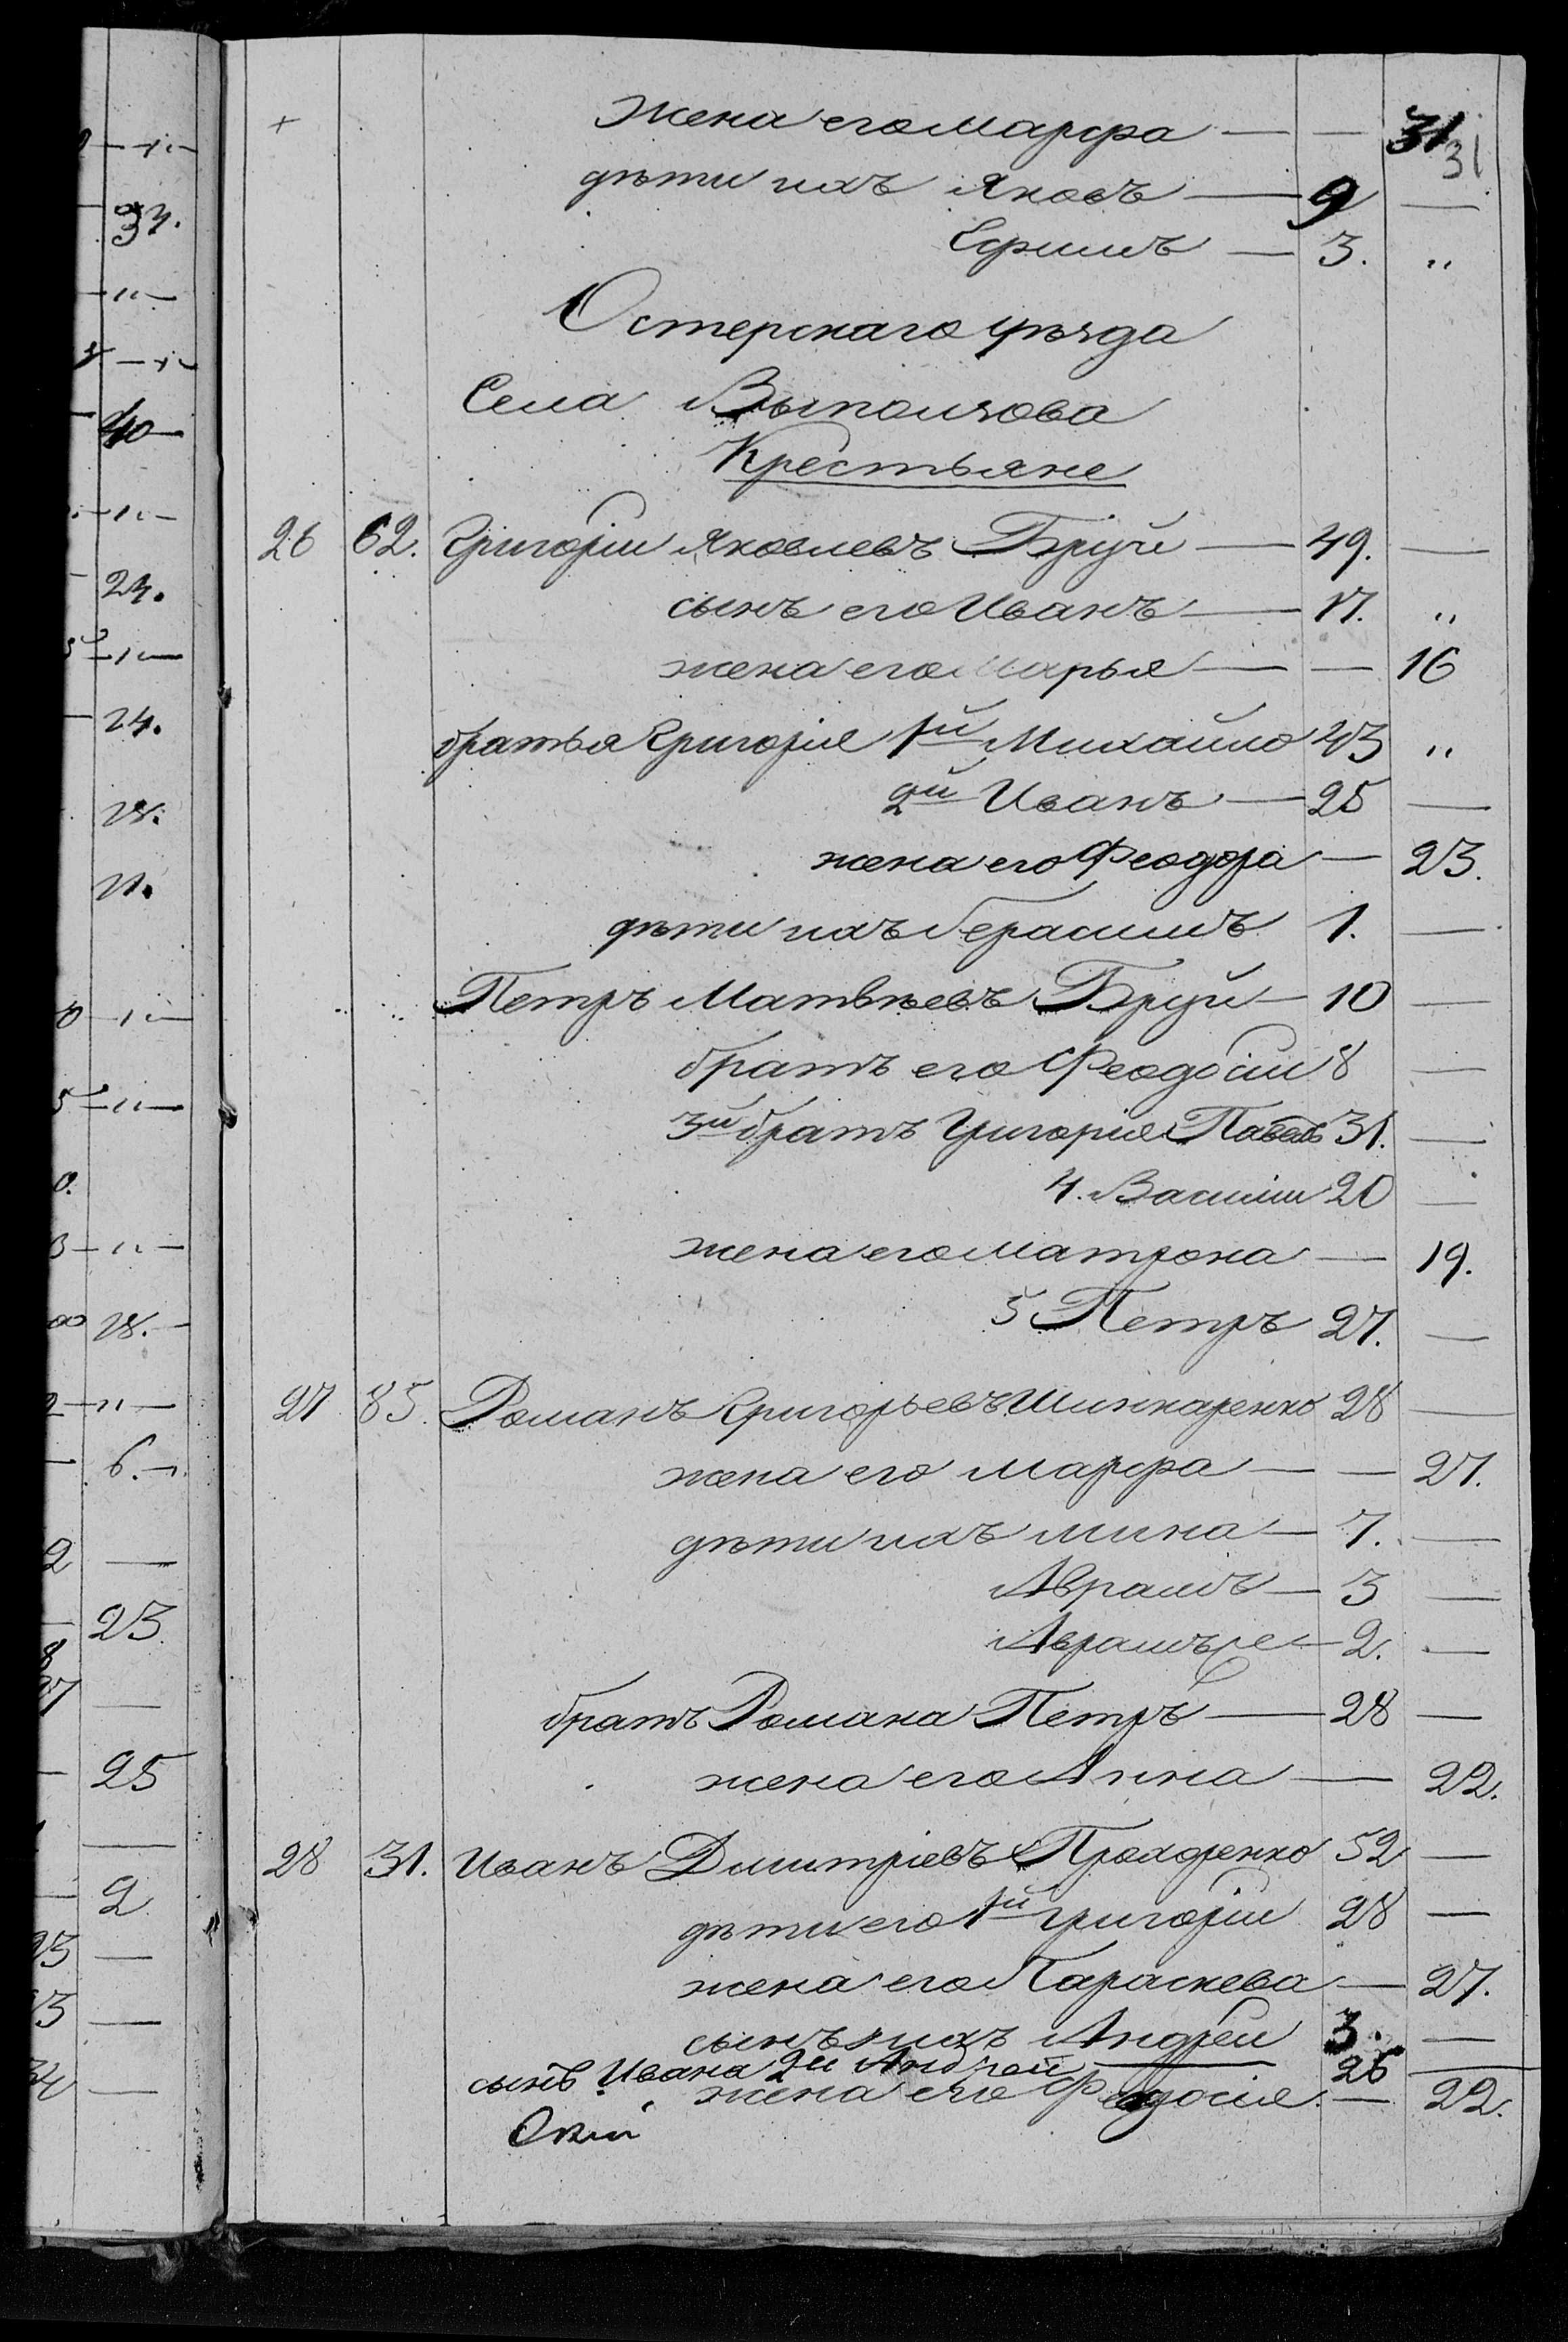 + Жена его Марфа — — 31
31
дѣти ихъ Яковъ — 9 —
Ефимъ — 3. "
Остерскаго уѣзда
Села Выползова
Крестьяне
26 62. Григорій Яковлевъ Бруй — 49. —
сынъ его Иванъ — 17. "
жена его Марья — — 16
братья Григорія 1й Михайло 43 "
2й Иванъ — 25 —
жена его Феодора — 23.
дѣти ихъ Герасимъ 1. —
Петръ Матвѣевъ Бруй — 10 —
братъ его Феодосій 8 —
3й братъ Григорія Павелъ 31. —
4. Василій 20 —
жена его Матрона — 19.
5 Петръ 27. —
27 85. Романъ Григорьевъ Шинкаренко 28 —
жена его Марфа — — 27.
дѣти ихъ Мина — 7. —
Аврамъ — 3 —
2. —
братъ Романа Петръ — 28 —
жена его Анна — 22.
28 31. Иванъ Димитріевъ Прохоренко 52 —
дѣти его 1й Григорій 28 —
жена его Параскева — 27.
сынъ ихъ Андрей 3. —
сынъ Ивана 2й Андрей — 26 —
жена его Федосія — 22.